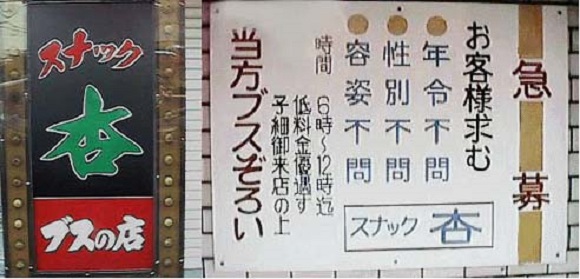 スナック
杏
ブスの店
急募
お客様求む
年令不問
性別不問
容姿不問
時間 6時〜12時迄
低料金優遇す
予細御来店の上
当方ブスぞろい
スナック 杏